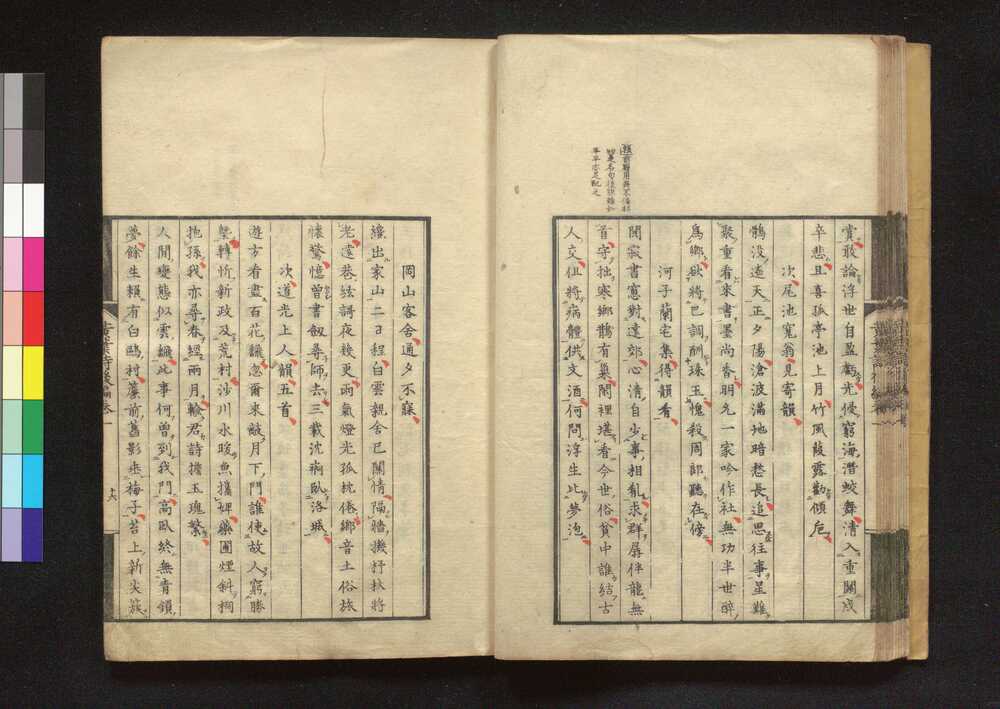 賞敢論浮世自盈虧光侵窮海潛蛟舞清入重關戍
卒悲且喜孤亭池上月竹風葭露勸傾巵
次尾池寬翁見寄韻
鶻没遠天正夕陽滄波滿地暗愁長追思往事星難
聚重看來書墨尚香明先一家吟作社無功半世醉
爲鄉欲將巴調酬珠玉愧殺周郎聽在傍
河子蘭宅集得韻看
閑寂書窓對遠郊心清自少事相亂求群孱伴龍無
首守拙寒鄉鵲有巢閑裡堪看今世俗貧中誰結古
人交但將病體供文酒何問浮生此夢泡
岡山客舍通夕不寐
纔出家山二日程白雲親舍已關情隔牆機抒秋將
老遠巷絃謌夜幾更雨氣燈光孤枕倦鄉音土俗旅
懷驚憶曾書劔尋師去三載沈痾臥洛城
次道光上人韻五首
遊方看盡百花譏忽爾來敲月下門誰使故人窮勝
槩轉忻新政及荒村沙川水暖魚攙婢藥圃煙斜狗
抱孫我亦尋春經兩月輸君詩擔玉瑰繁
人間變態似雲翻此事何曾到我門高臥終無青鎖
夢餘生賴有白鷗村簾前舊影來梅子苔上新尖簇